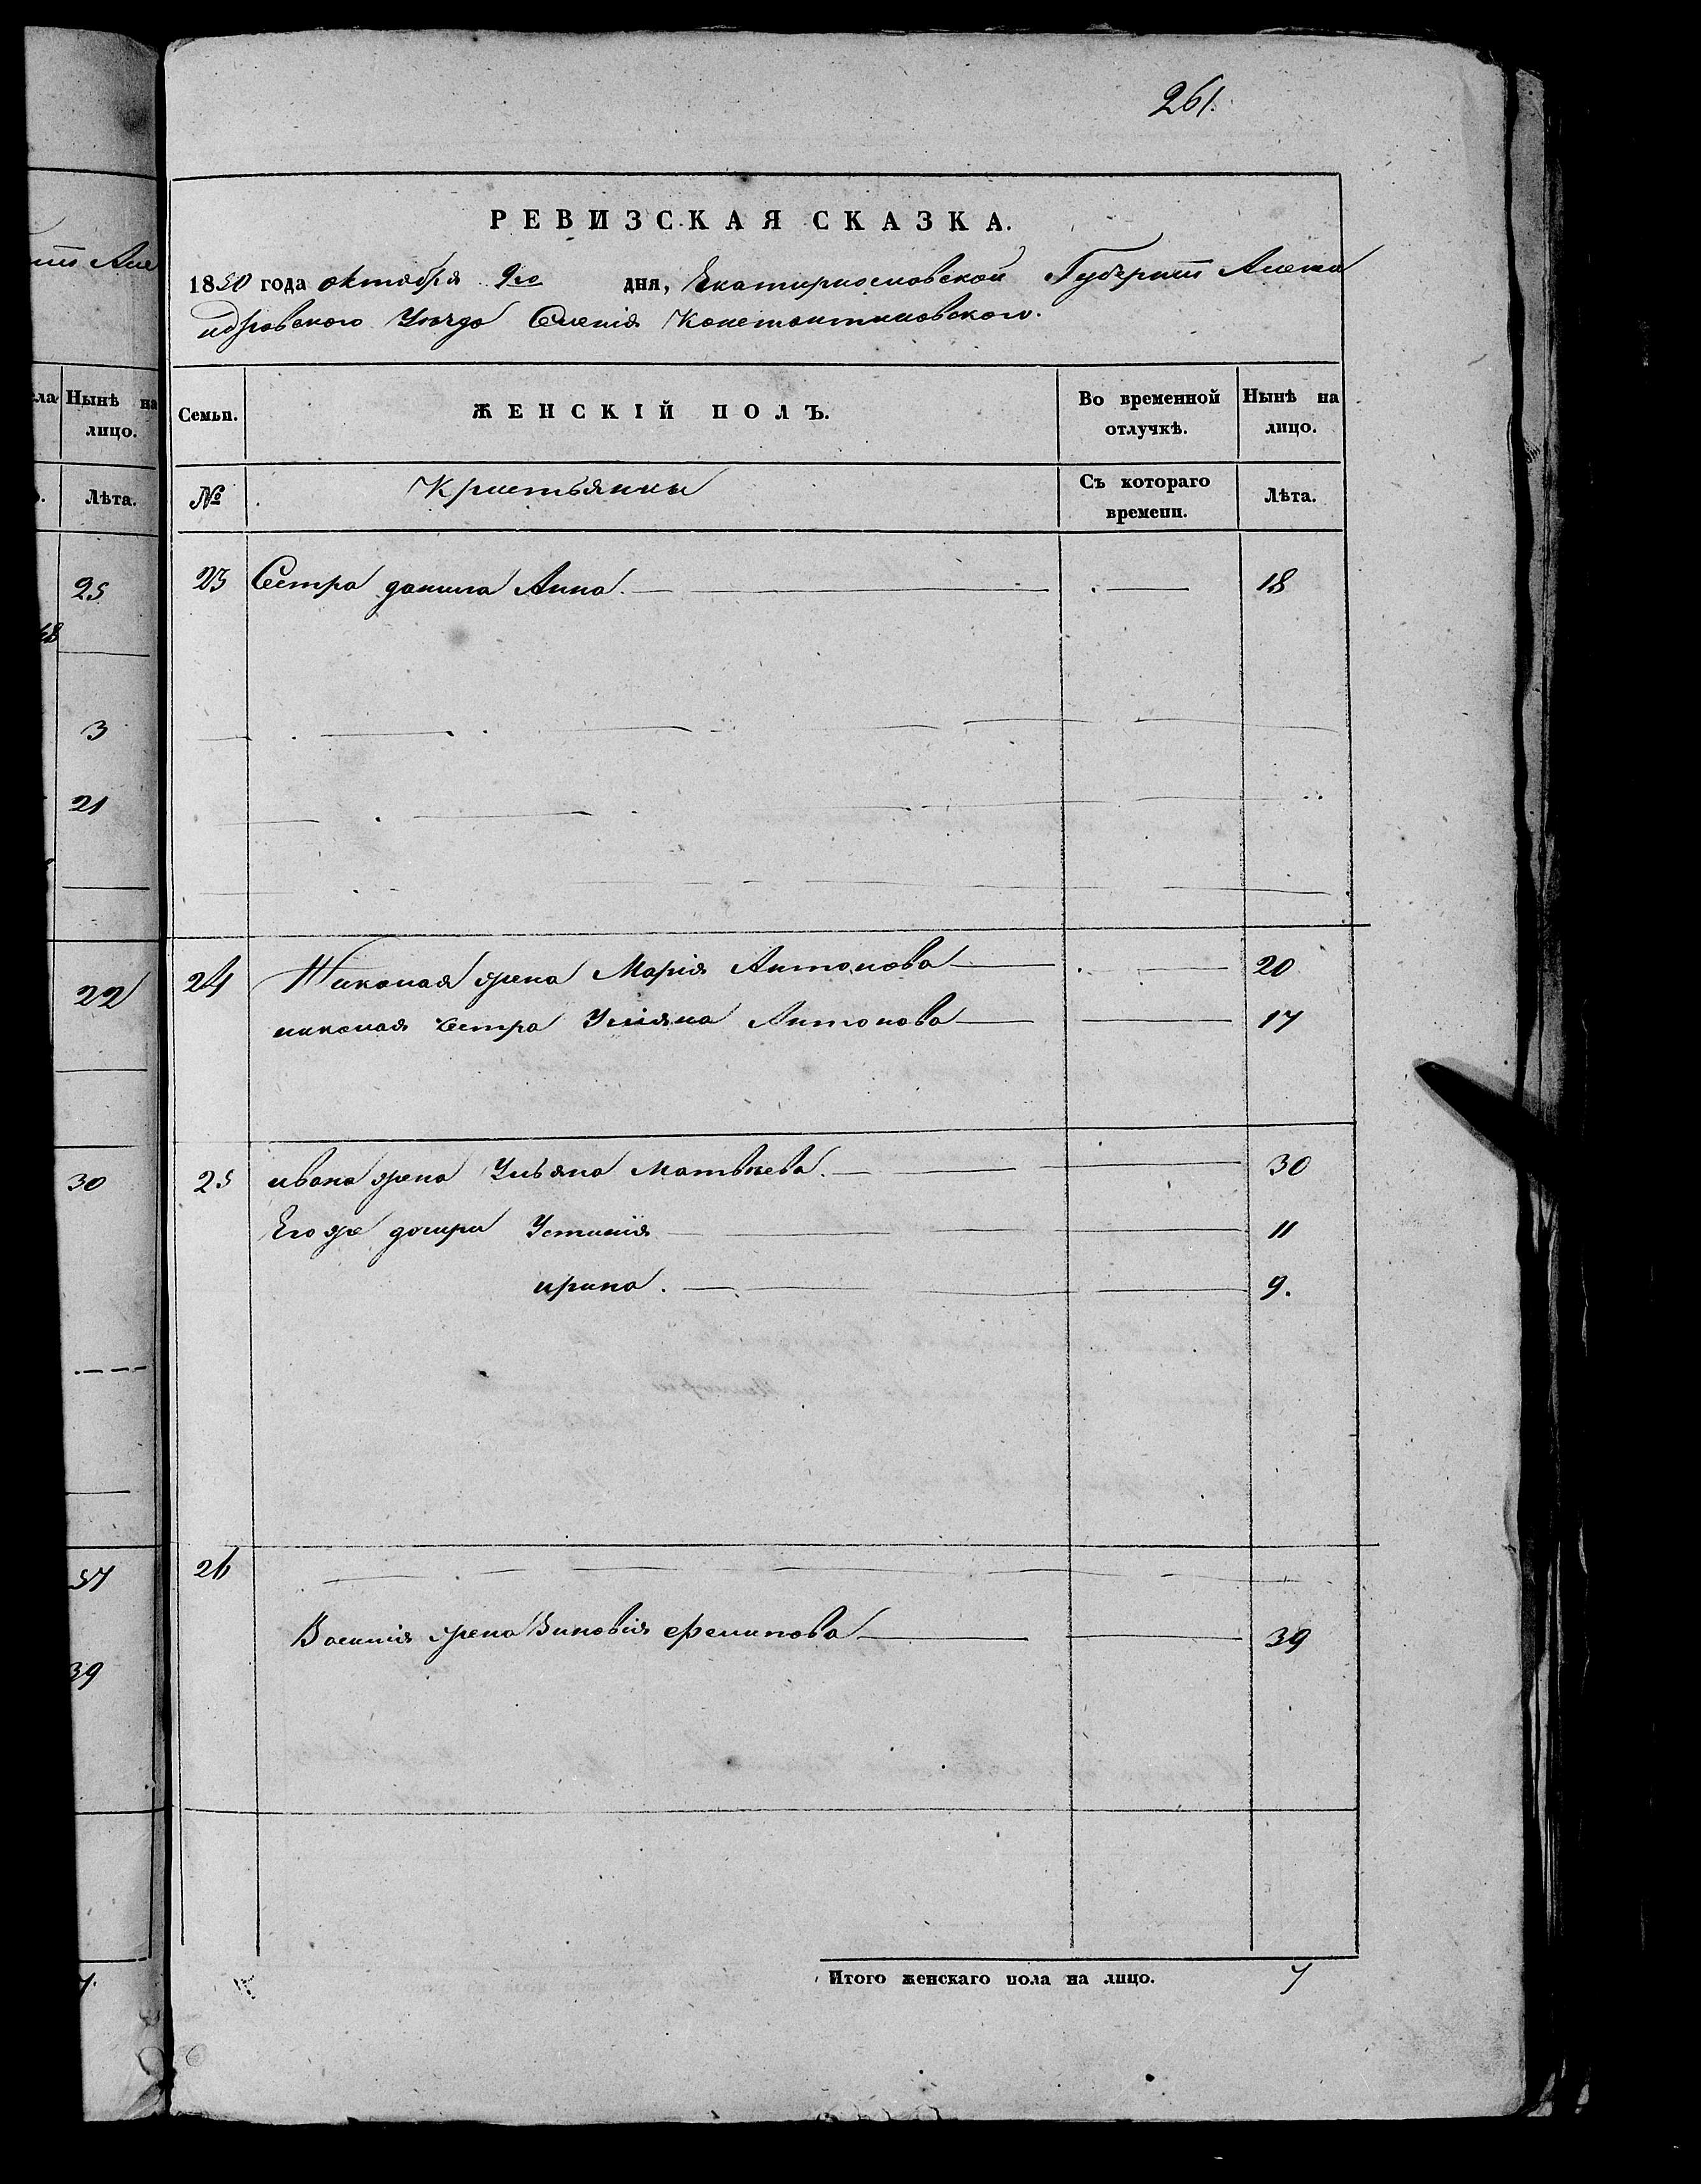 261.
РЕВИЗСКАЯ СКАЗКА.
1850 года октября 9го дня, Екатириославской Губернии Алекса
ндровского Уезда Селенія Константиновского.
Семьи. ЖЕНСКІЙ ПОЛЪ. Во временной отлучкѣ. Нынѣ на лицо.
№ Кристьянки Съ котораго времени. Лѣта.
23 Сестра данила Анна. 18
24 Николая жена Марія Антонова 20
николая сестра Улияна Антонова 17
25 ивана жена Ульяна Матвеева. 30
Его же дочири Устинія 11
ирина. 9.
26
Василія жена Зиновія Филипова 39
Итого женскаго пола на лицо. 7
Нынѣ на
лицо.
Лѣта.
25
3
21
22
30
57
39